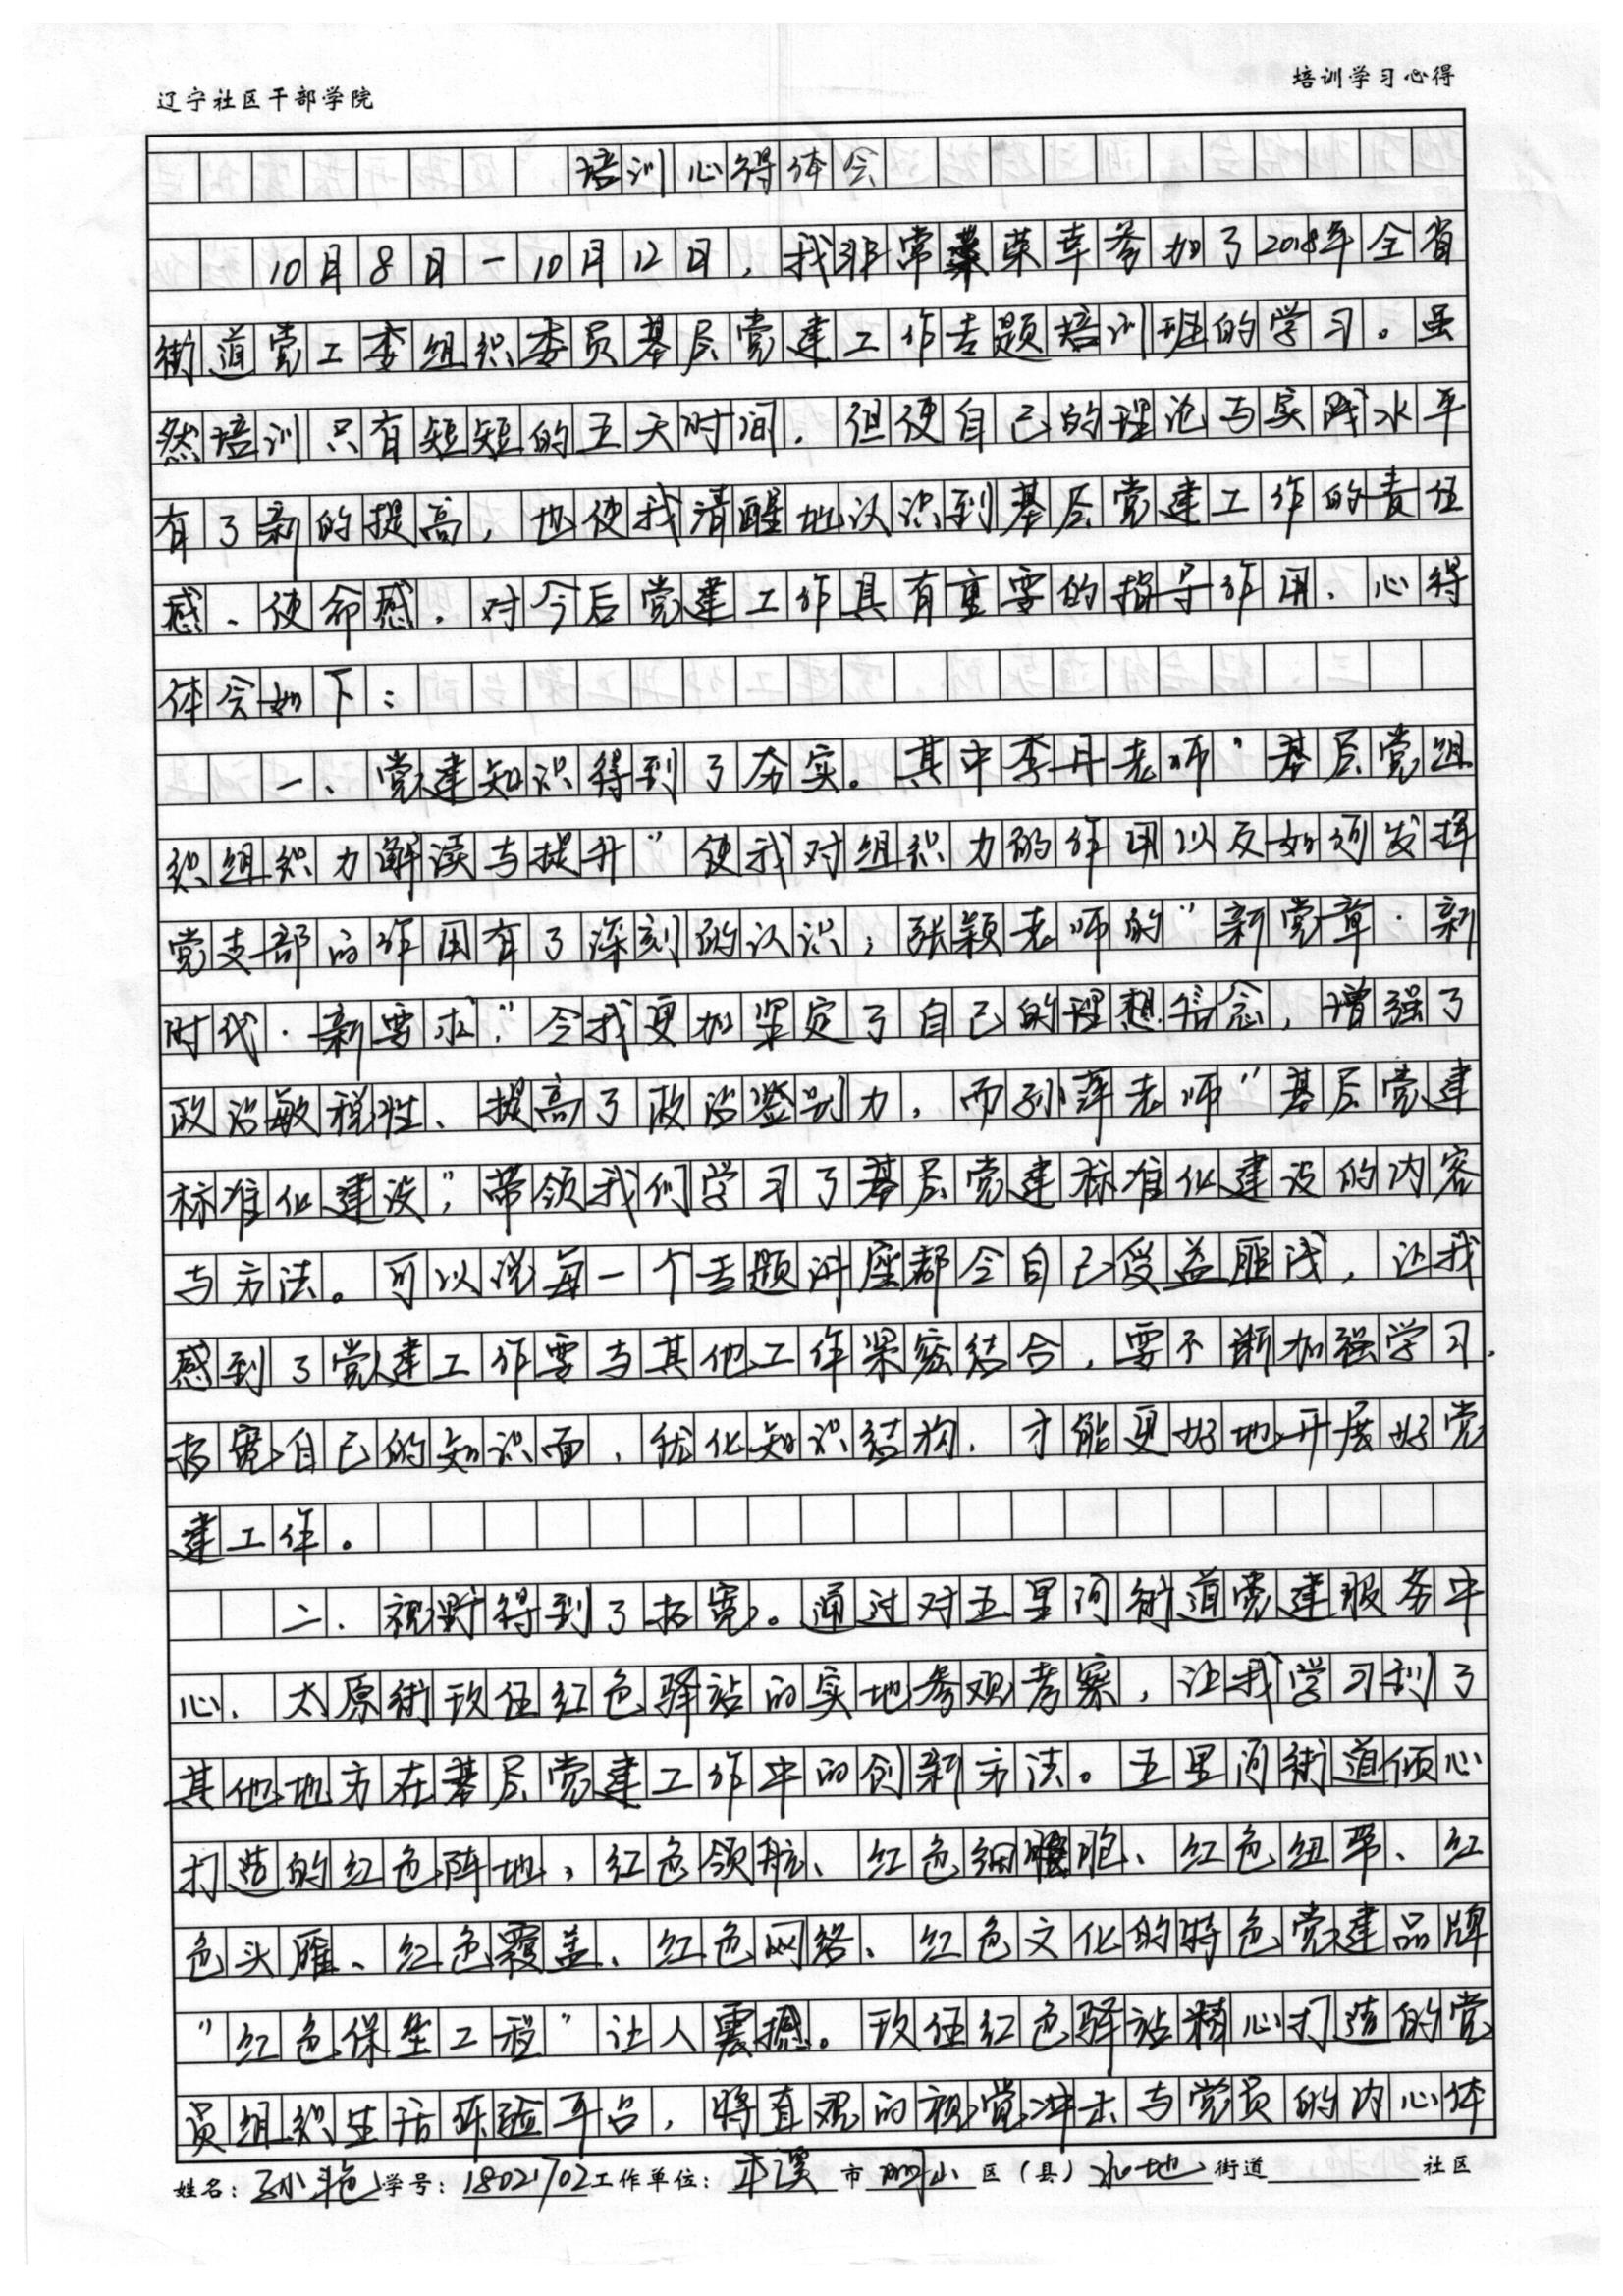 辽宁社区干部学院
培训学习心得
培训心得体会
10月8日-10月12日，我非常荣幸参加了2018年全省
街道党工委组织委员基层党建工作专题培训班的学习。虽
然培训只有短短的五天时间，但使自己的理论与实践水平
有了新的提高，也使我清醒地认识到基层党建工作的责任
感、使命感，对今后党建工作具有重要的指导作用、心得
体会如下：
一、党建知识得到了夯实。其中李丹老师“基层党组
织组织力解读与提升”使我对组织力的作用以及如何发挥
党支部的作用有了深刻的认识；张颖老师的“新党章·新
时代·新要求”令我更加坚定了自己的理想信念，增强了
政治敏锐性、提高了政治鉴别力，而孙萍老师“基层党建
标准化建设”，带领我们学习了基层党建标准化建设的内容
与方法。可以说每一个专题讲座都令自己受益匪浅，让我
感到了党建工作要与其他工作紧密结合，要不断加强学习，
拓宽自己的知识面，优化知识结构，才能更好地开展好党
建工作。
二、视野得到了拓宽。通过对五里河街道党建服务中
心、太原街玖伍红色驿站的实地参观考察，让我学习到了
其他地方在基层党建工作中的创新方法。五里河街道倾心
打造的红色阵地，红色领航、红色细胞、红色纽带、红
色头雁、红色覆盖、红色网络、红色文化的特色党建品牌
“红色保垒工程”让人震撼。玖伍红色驿站精心打造的党
员组织生活体验平台，将直观的视觉冲击与党员的内心体
姓名：孙艳学号：18021702工作单位：本溪市明山区（县）永地街道 社区